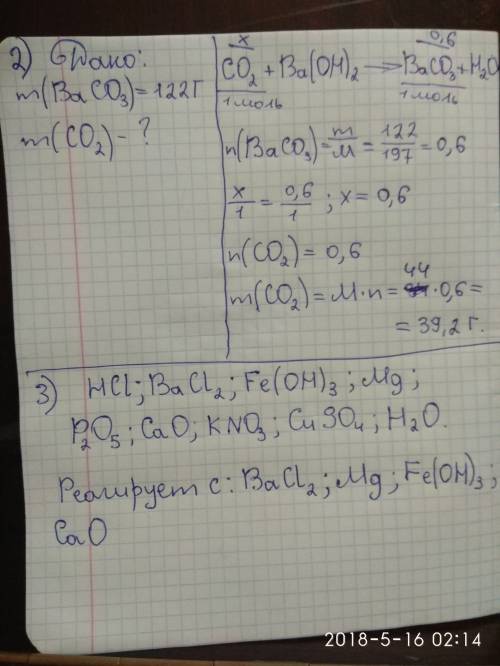 2) Дано:
m(BaCO₃)=122г
m(CO₂)-?
x 0,6
CO₂ + Ba(OH)₂ → BaCO₃ + H₂O
1 моль 1 моль
n(BaCO₃) = m/M = 122/197 = 0,6
x/1 = 0,6/1 ; x = 0,6
n(CO₂) = 0,6
m(CO₂) = M·n = 44·0,6 =
= 39,2 г.
3) HCl; BaCl₂; Fe(OH)₃; Mg;
P₂O₅; CaO; KNO₃; CuSO₄; H₂O.
Реагирует с: BaCl₂; Mg; Fe(OH)₃;
CaO
2018-5-16 02:14